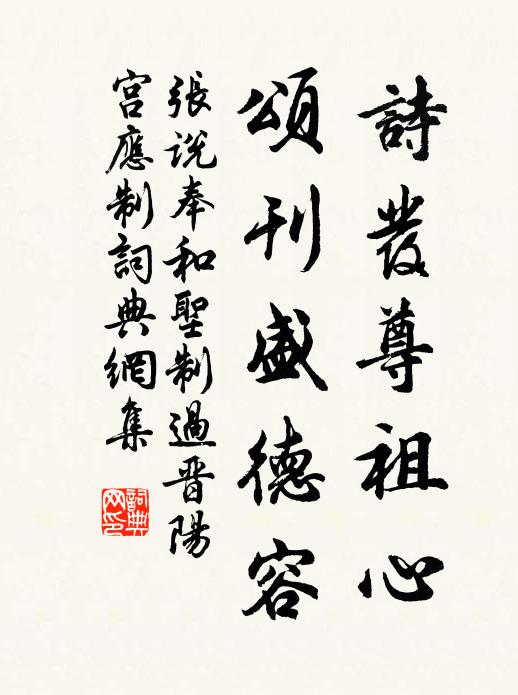 詩發尊祖心
頌刊盛德容
張說奉和聖制過晉陽
宮應制詞典網集
詞典網印